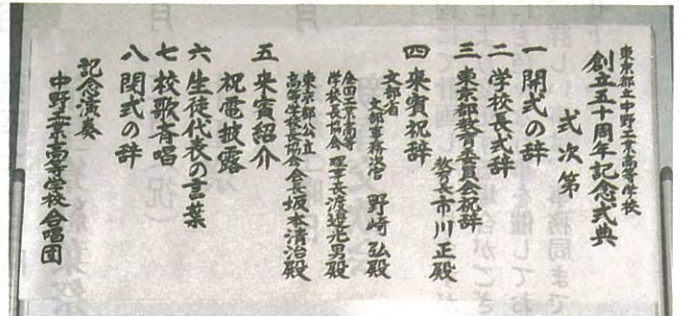 東京都立中野工業高等学校
創立五十周年記念式典
式次第
一 開式の辞
二 学校長式辞
三 東京都教育委員会祝辞
教育長 市川正殿
四 来賓祝辞
文部省
文部事務次官 野崎弘殿
全国工業高等
学校長協会 理事長 渡邊光男殿
東京都公立
高等学校長協会 会長 坂本清治殿
五 来賓紹介
祝電披露
六 生徒代表の言葉
七 校歌斉唱
八 閉式の辞
記念演奏
中野工業高等学校 合唱団